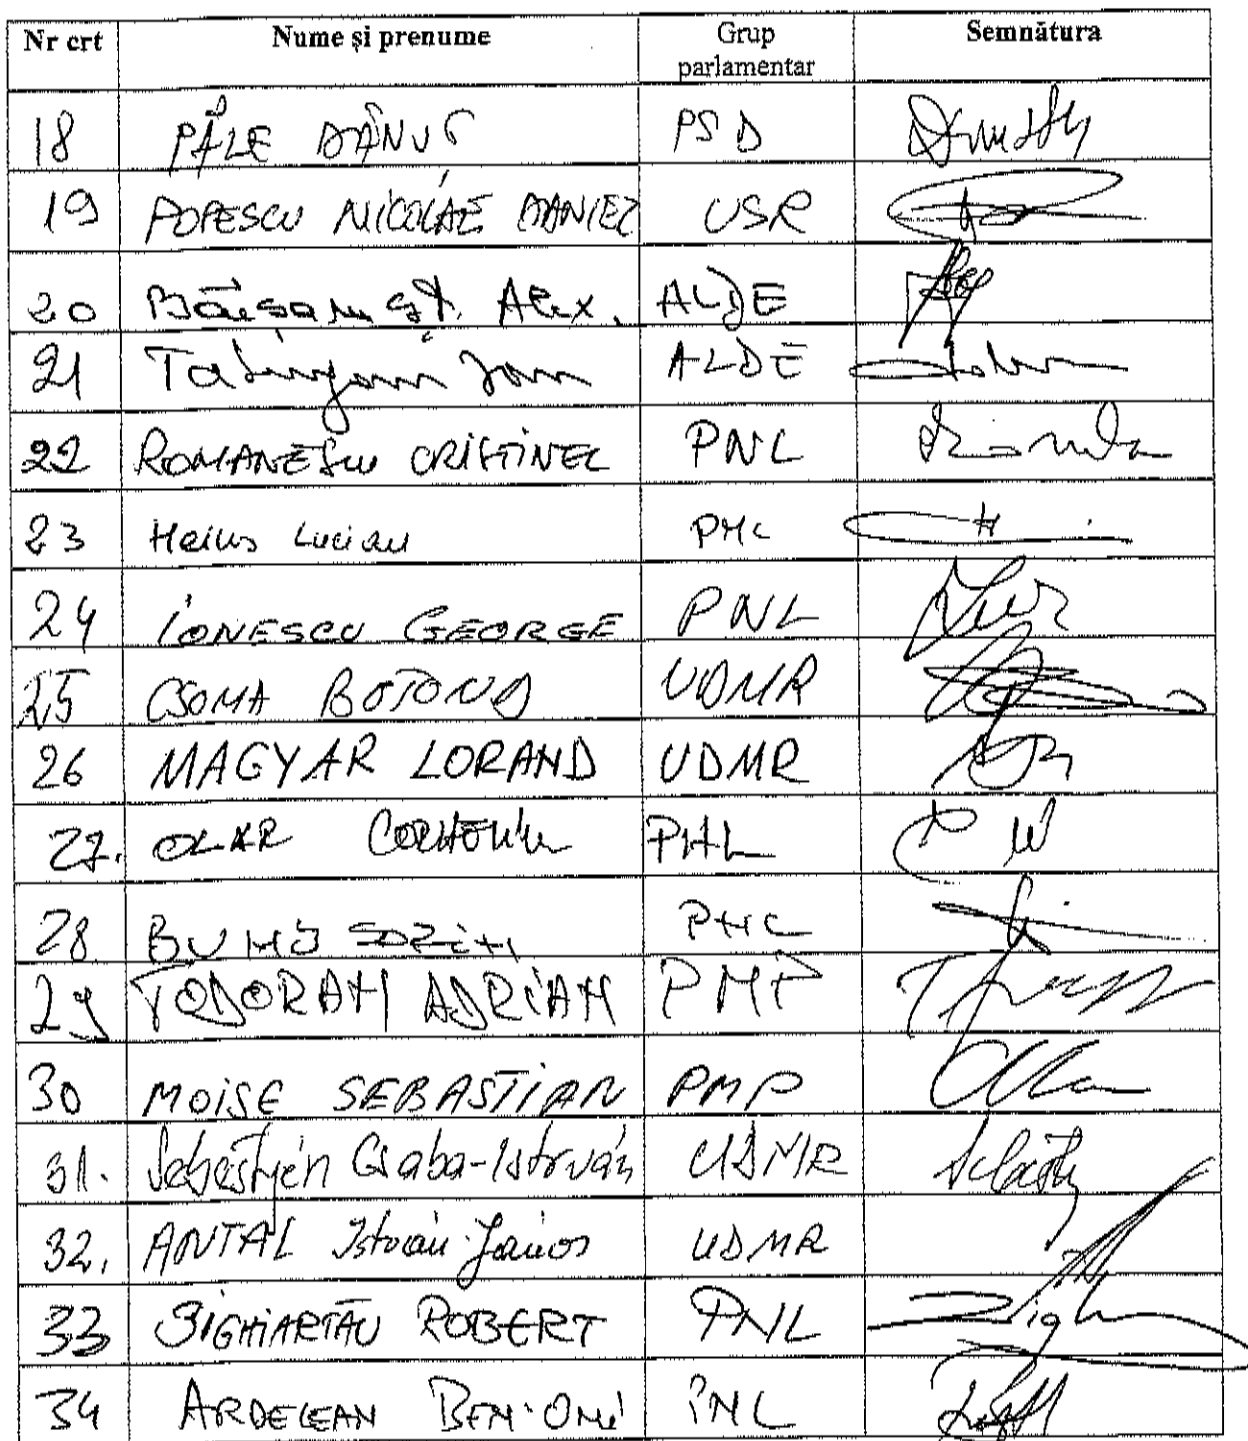 Nr crt Nume și prenume Grup parlamentar Semnătura
18 PÂLE DĂNUȚ PSD
19 POPESCU NICOLAE DANIEL USR
20 Băișanu Șt. Alex. ALDE
21 ALDE
22 ROMANESCU CRISTINEL PNL
23 Heius Lucian PNL
24 IONESCU GEORGE PNL
25 CSOMA BOTOND UDMR
26 MAGYAR LORAND UDMR
27. OLAR CORNELIU PNL
28 BUMB SORIN PNL
29 TODORAN ADRIAN PMP
30 MOISE SEBASTIAN PMP
31. Sebestyén Csaba-István UDMR
32. ANTAL István-János UDMR
33 SIGHIARTĂU ROBERT PNL
34 ARDELEAN BEN-Oni PNL